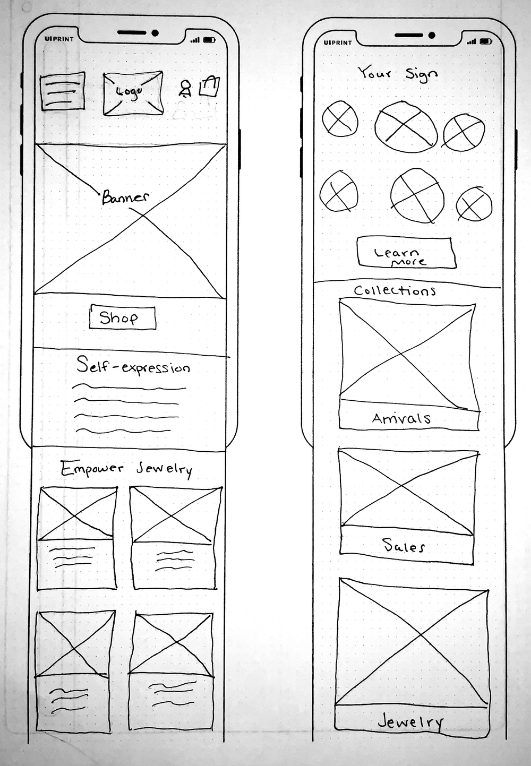 UIPRINT
Logo
Banner
Shop
Self-expression
Empower Jewelry
UIPRINT
Your Sign
Learn
more
Collections
Arrivals
Sales
Jewelry